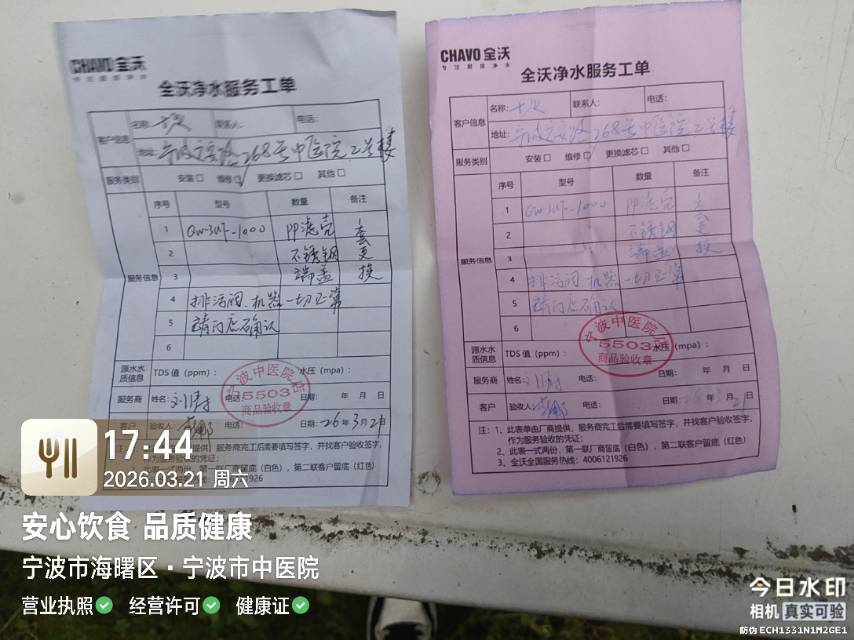 CHAVO 全沃
全沃净水服务工单
客户信息
名称:
联系人:
电话:
地址: 268号中医院2号楼
服务类别
安装□ 维修□ 更换滤芯□ 其他□
服务信息
序号 型号 数量 备注
1 PP滤壳 去
2 不锈钢 更
3 端盖 换
4 排污阀.机器一切正常
5 请门店确认
6
源水水质信息
TDS值(ppm): 水压(mpa):
服务商 姓名: 电话: 日期: 年 月 日
客户 验收人: 电话: 日期: 26年3月21日
宁波中医院店
5503
商品验收章
CHAVO 全沃
专注厨房净水
全沃净水服务工单
客户信息
名称:
联系人:
电话:
地址: 268号中医院2号楼
服务类别
安装□ 维修□ 更换滤芯□ 其他□
服务信息
序号 型号 数量 备注
1 PP滤壳 去
2 不锈钢 更
3 端盖 换
4 排污阀.机器一切正常
5 请门店确认
6
源水水质信息
TDS值(ppm): 水压(mpa):
宁波中医院店
5503
商品验收章
服务商 姓名: 电话: 日期: 年 月 日
客户 验收人: 电话: 日期:
注:1、此表单由厂商提供、服务商完工后需要填写签字、并找客户验收签字,
作为服务验收的凭证;
2、此表一式两份,第一联厂商留底(白色)、第二联客户留底(红色)
3、全沃全国服务热线:4006121926
17:44
2026.03.21 周六
安心饮食 品质健康
宁波市海曙区·宁波市中医院
营业执照 经营许可 健康证
今日水印
相机 真实可验
防伪 ECH1331N1M2GE1